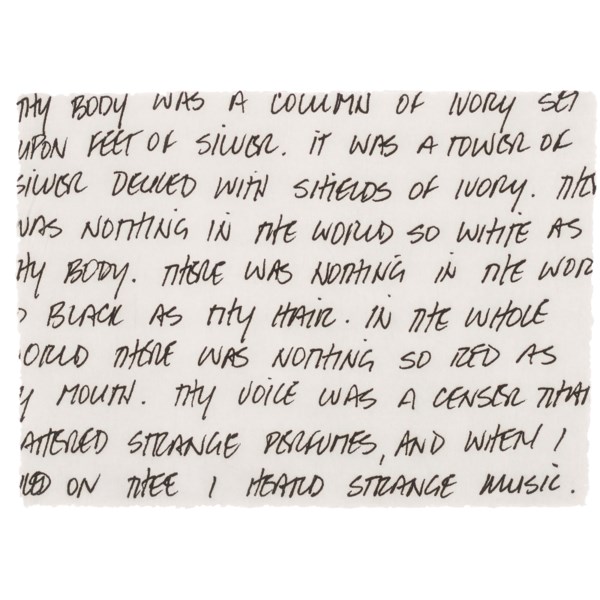 THY BODY WAS A COLUMN OF IVORY SET
UPON FEET OF SILVER. IT WAS A TOWER OF
SILVER DECKED WITH SHIELDS OF IVORY. THE
WAS NOTHING IN THE WORLD SO WHITE AS
HY BODY. THERE WAS NOTHING IN THE WOR
BLACK AS THY HAIR. IN THE WHOLE
ORLD THERE WAS NOTHING SO RED AS
Y MOUTH. THY VOICE WAS A CENSER THAT
ATTERED STRANGE PERFUMES, AND WHEN I
KED ON THEE I HEARD STRANGE MUSIC.